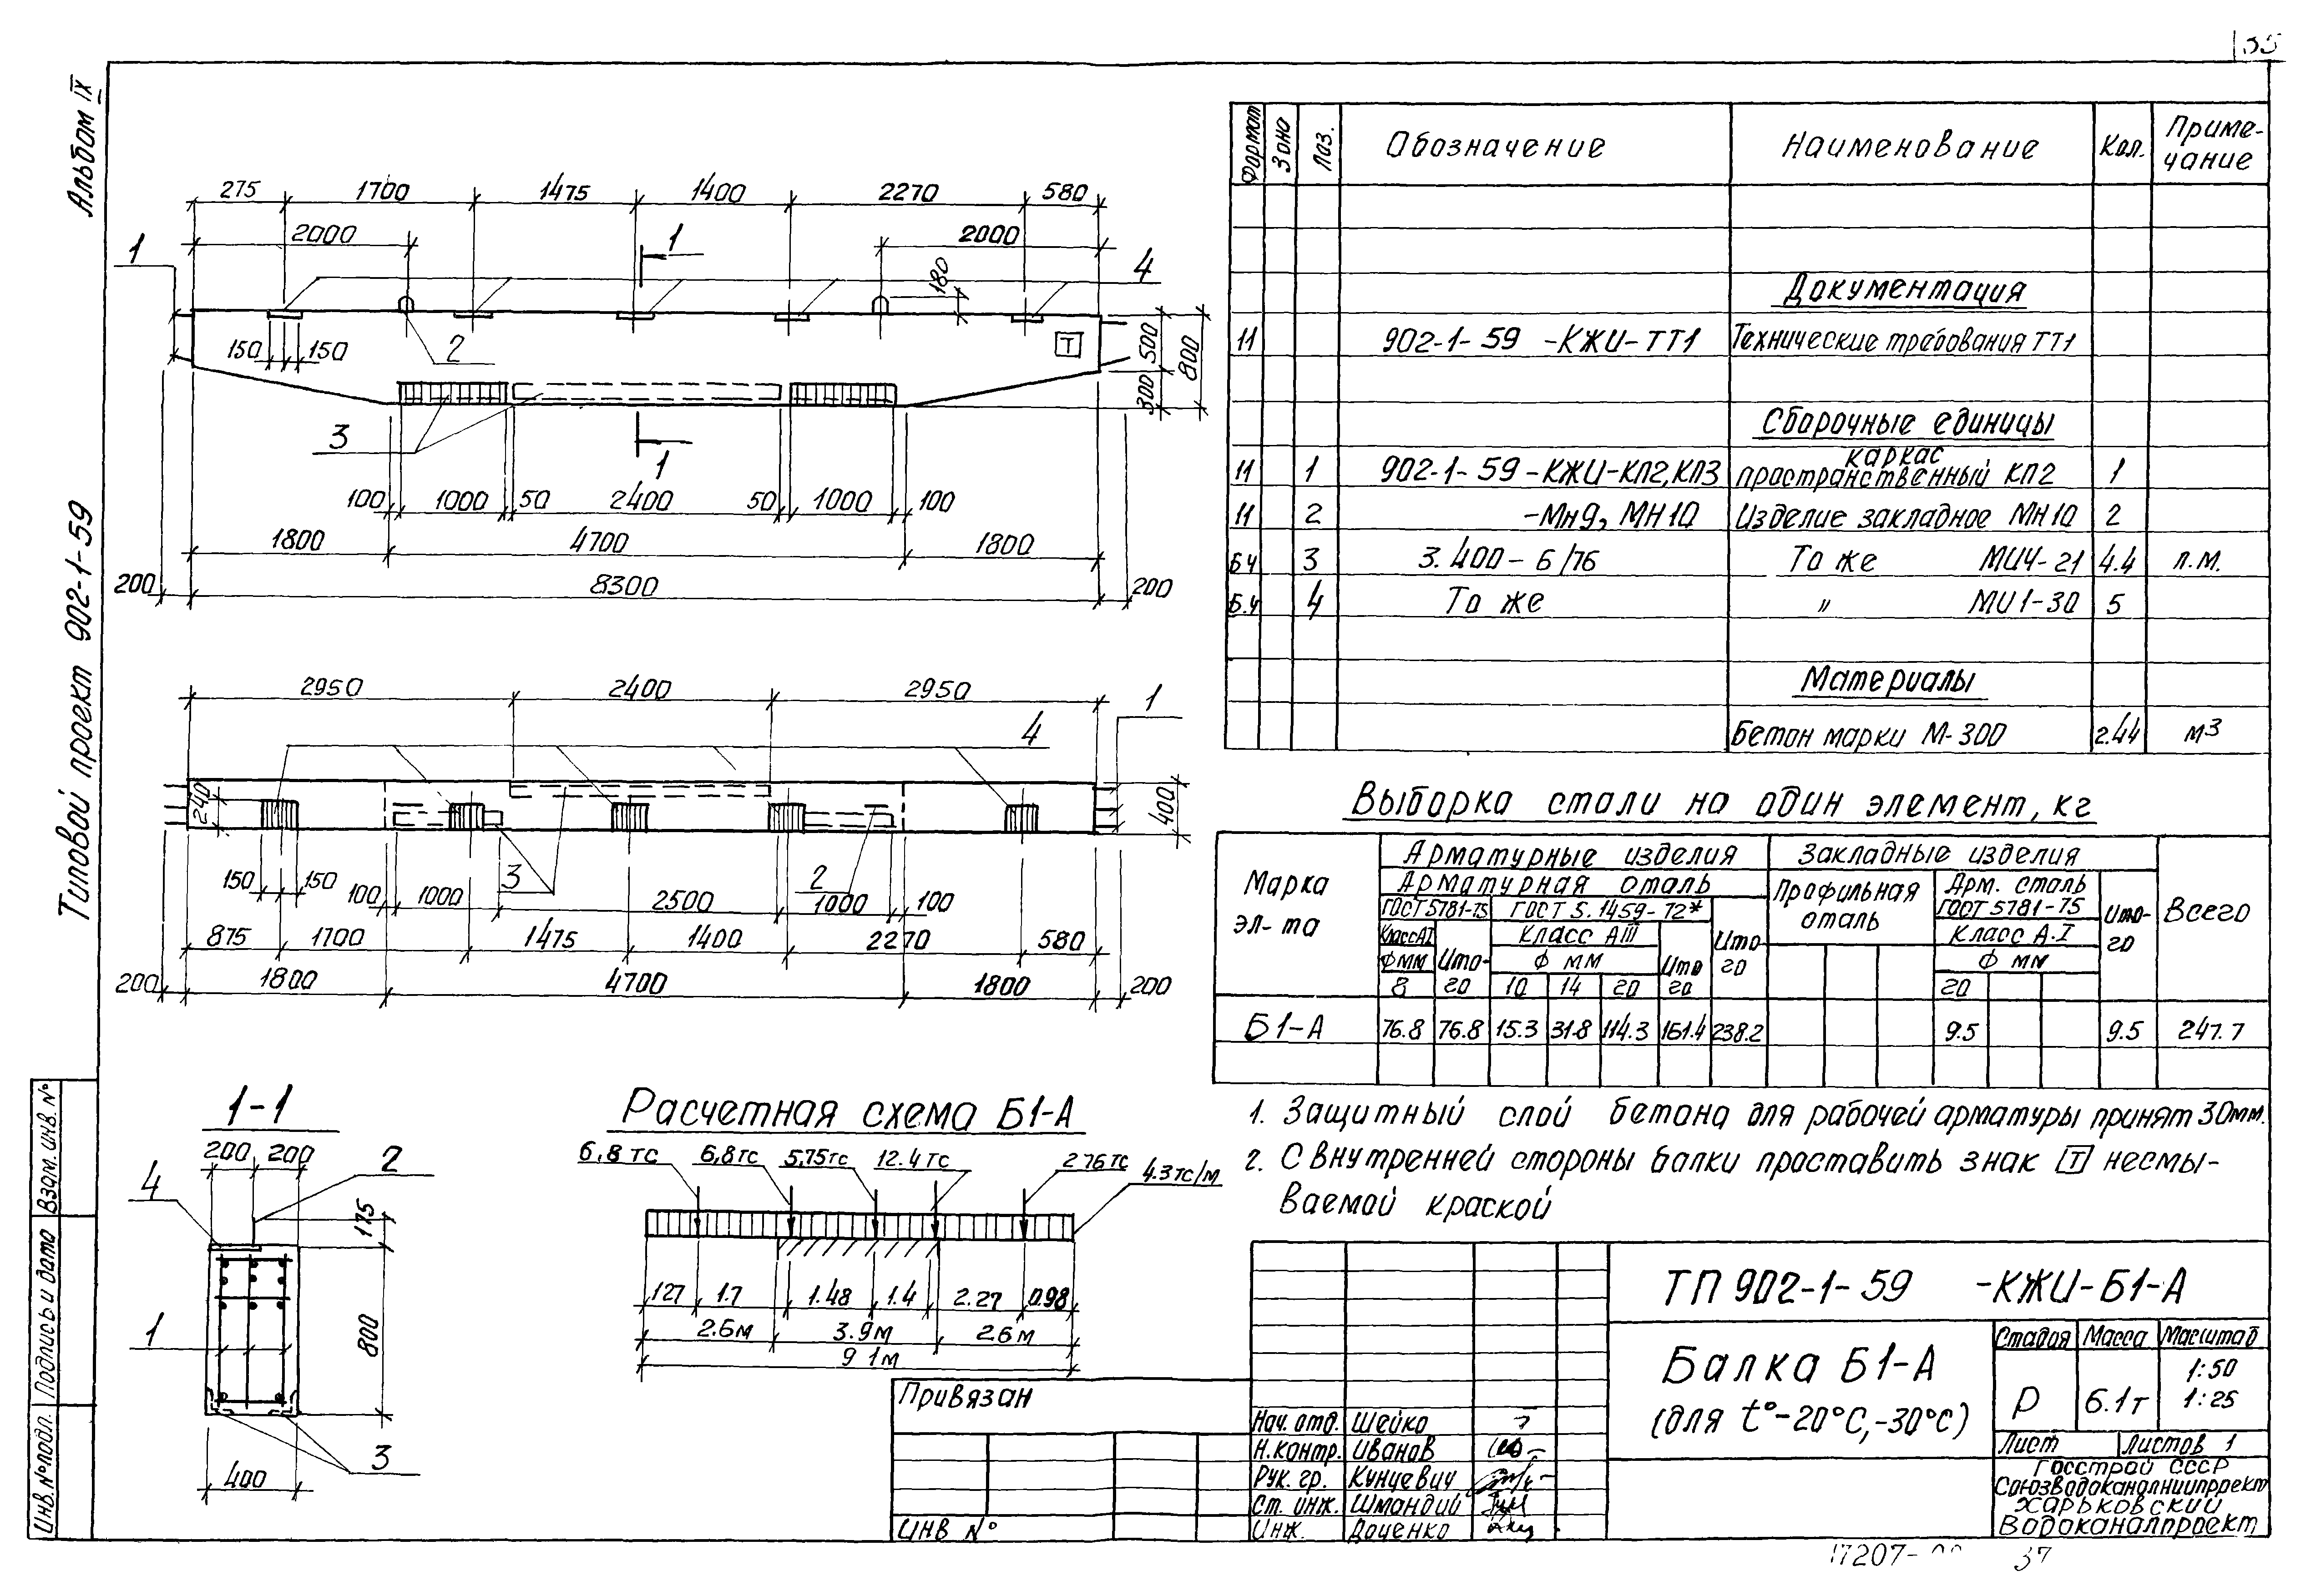 35
Альбом IX
Типовой проект 902-1-59
275 1700 1475 1400 2270 580
2000 2000
1 1 180 4
150 150 2 Т 500 800
300
3 1
100 1000 50 2400 50 1000 100
1800 4700 1800
200 8300 200
2950 2400 2950 1
4
240 400
150 150 100 1000 3 2500 2 1000 100
875 1700 1475 1400 2270 580
200 1800 4700 1800 200
1-1
200 200 2
4
175
1 800
3
400
Расчетная схема Б1-А
6,8 тс 6,8 тс 5,75 тс 12.4 тс 2 76 тс 4.3 тс/м
127 1.7 1.48 1.4 2.27 0.98
2.6м 3.9м 2.6м
9 1м
Формат Зона Поз. Обозначение Наименование Кол. Приме-
чание
Документация
11 902-1-59 -КЖИ-ТТ1 Технические требования ТТ1
Сборочные единицы
каркас
11 1 902-1-59-КЖИ-КП2,КП3 пространственный КП2 1
11 2 -Мн9, МН10 Изделие закладное МН10 2
БЧ 3 3.400-6/76 То же МИ4-21 4.4 п.м.
Б.Ч 4 То же " МИ1-30 5
Материалы
Бетон марки М-300 2.44 м3
Выборка стали на один элемент, кг
Марка
эл-та
Арматурные изделия Закладные изделия
Арматурная сталь Профильная
сталь Арм. сталь
ГОСТ 5781-75 Ито-
го Всего
ГОСТ 5781-75 ГОСТ 5.1459-72* Ито
го
Класс АI Ито-
го Класс АIII Ито
го Класс А-I
Ф мм Ф мм Ф мм
8 10 14 20 20
Б1-А 76.8 76.8 15.3 31.8 114.3 161.4 238.2 9.5 9.5 247.7
1. Защитный слой бетона для рабочей арматуры принят 30мм.
2. С внутренней стороны балки проставить знак Т несмы-
ваемой краской
ТП 902-1-59 -КЖИ-Б1-А
Балка Б1-А
(для t°-20°С,-30°С)
Стадия Масса Масштаб
Р 6.1т 1:50
1:25
Лист Листов 1
Госстрой СССР
Союзводоканалниипроект
Харьковский
Водоканалпроект
Привязан
Инв №
Нач. отд. Шейко
Н.контр. Иванов
Рук. гр. Кунцевич
Ст. инж. Шмандий
Инж. Доценко
Инв.№подл. Подпись и дата Взам. инв. №
17207- 37